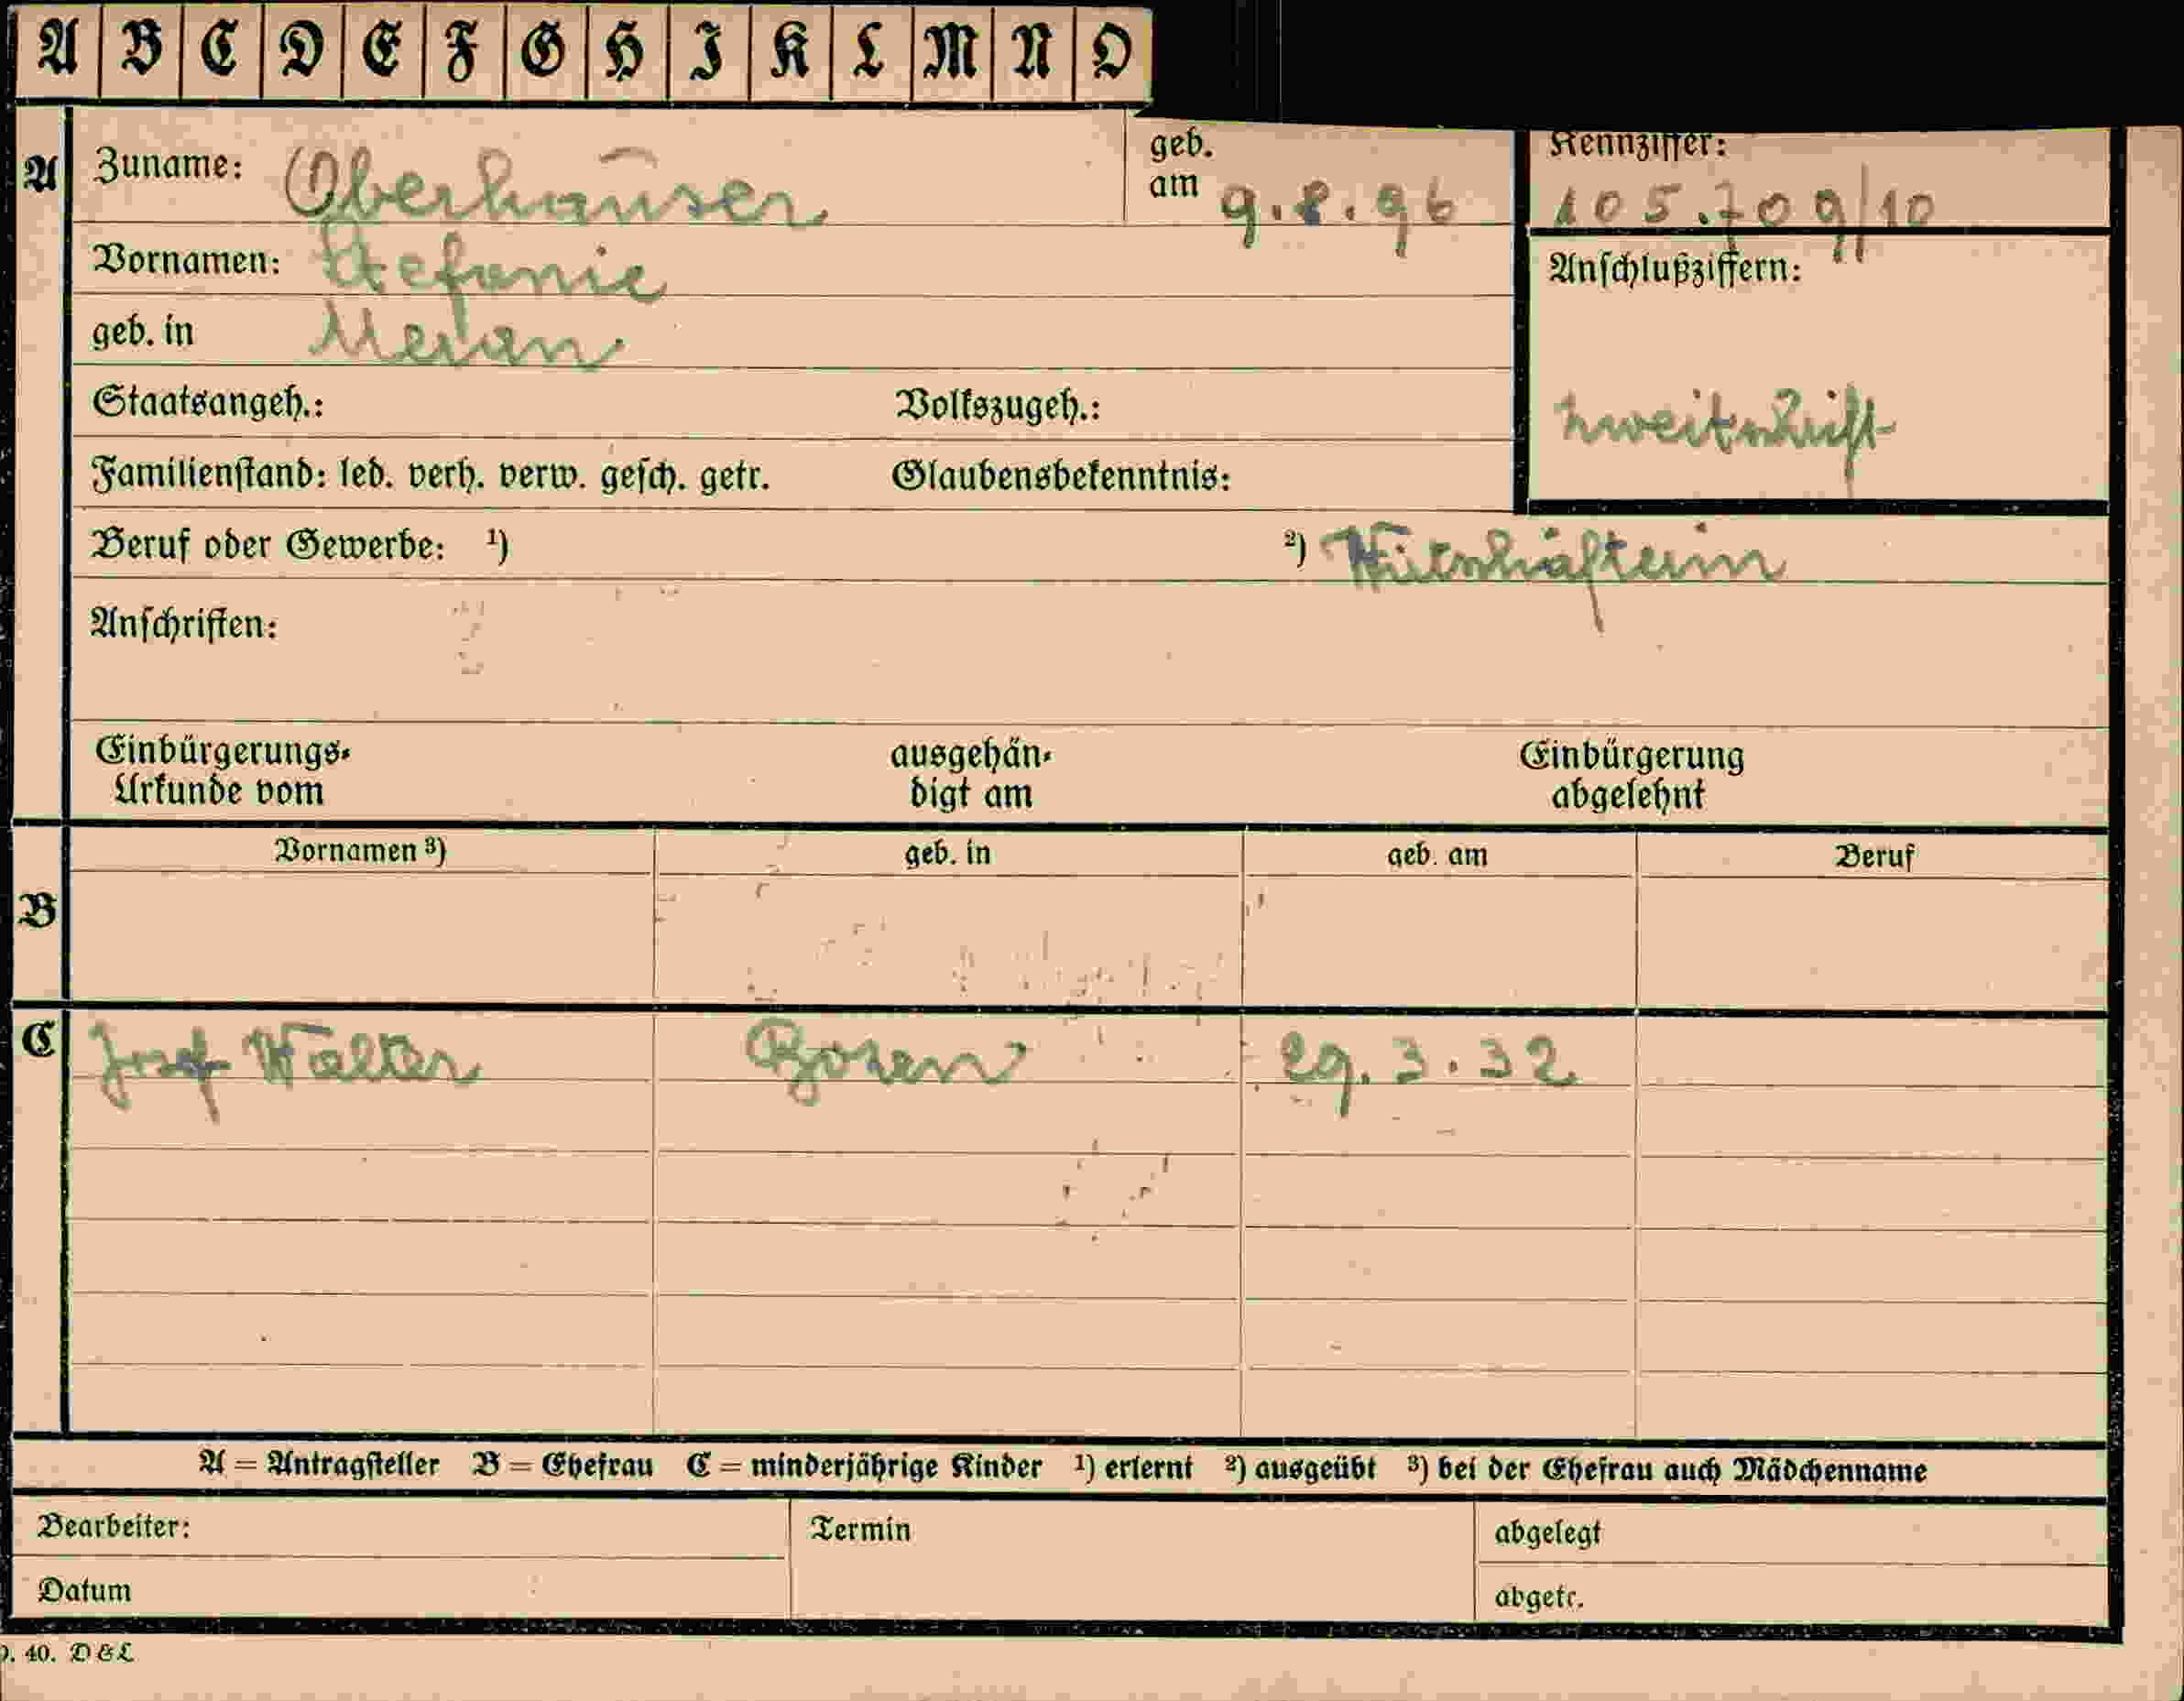 A B C D E F G H I K L M N O
A Zuname: Oberhauser geb. am 9.8.96 Kennziffer: 105.709/10
Vornamen: Stefanie Anschlußziffern:
geb. in Meran
Staatsangeh.: Volkszugeh.: Zweitschrift
Familienstand: led. verh. verw. gesch. getr. Glaubensbekenntnis:
Beruf oder Gewerbe: ¹) ²) Wirtschafterin
Anschriften:
Einbürgerungs- ausgehän- Einbürgerung
Urkunde vom digt am abgelehnt
Vornamen ³) geb. in geb. am Beruf
B
C Josef Walter Bozen 29.3.32
A = Antragsteller B = Ehefrau C = minderjährige Kinder ¹) erlernt ²) ausgeübt ³) bei der Ehefrau auch Mädchenname
Bearbeiter: Termin abgelegt
Datum abgetr.
40. D & L